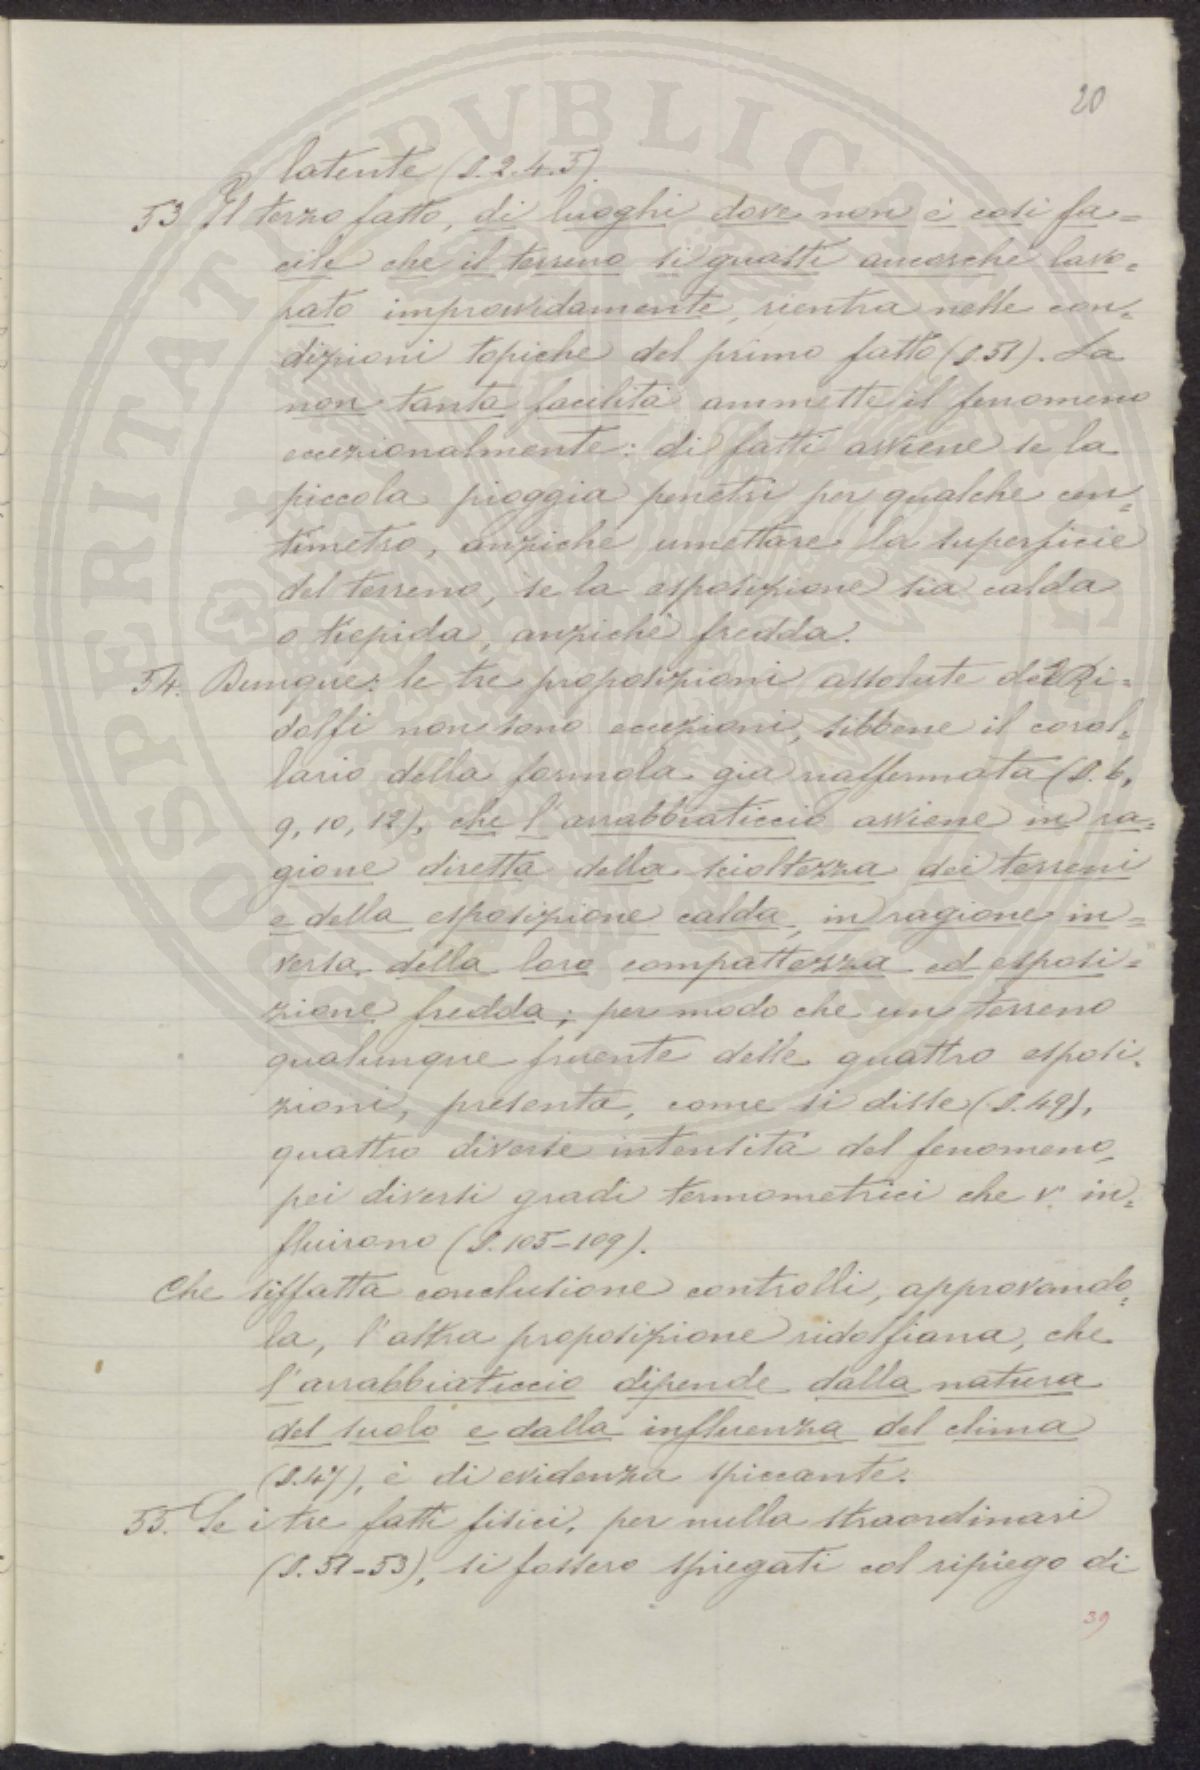 20
latente (§. 2. 4. 5).
53. Il terzo fatto, di luoghi dove non è così fa=
cile che il terreno si guasti ancorchè lavo=
rato improvvidamente, rientra nelle con=
dizioni topiche del primo fatto (§ 51). La
non tanta facilità ammette il fenomeno
eccezionalmente: di fatti avviene se la
piccola pioggia penetri per qualche cen=
timetro, anzichè umettare la superficie
del terreno, se la esposizione sia calda
o tiepida, anzichè fredda.
54. Dunque: le tre proposizioni assolute del Ri=
dolfi non sono eccezioni, sibbene il corol=
lario della formola già riaffermata (§. 6,
9, 10, 12), che l'arrabbiaticcio avviene in ra=
gione diretta della scioltezza dei terreni
e della esposizione calda, in ragione in=
versa della loro compattezza ed esposi=
zione fredda; per modo che un terreno
qualunque fruente delle quattro esposi=
zioni, presenta, come si disse (§. 49),
quattro diverse intensità del fenomeno,
pei diversi gradi termometrici che v'in=
fluirono (§. 105-109).
Che siffatta conclusione controlli, approvando=
la, l'altra proposizione ridolfiana, che
l'arrabbiaticcio dipende dalla natura
del suolo e dalla influenza del clima
(§. 47), è di evidenza spiccante.
55. Se i tre fatti fisici, per nulla straordinari
(§. 51-53), si fossero spiegati col ripiego di
39
PROSPERITATI PVBLICAE